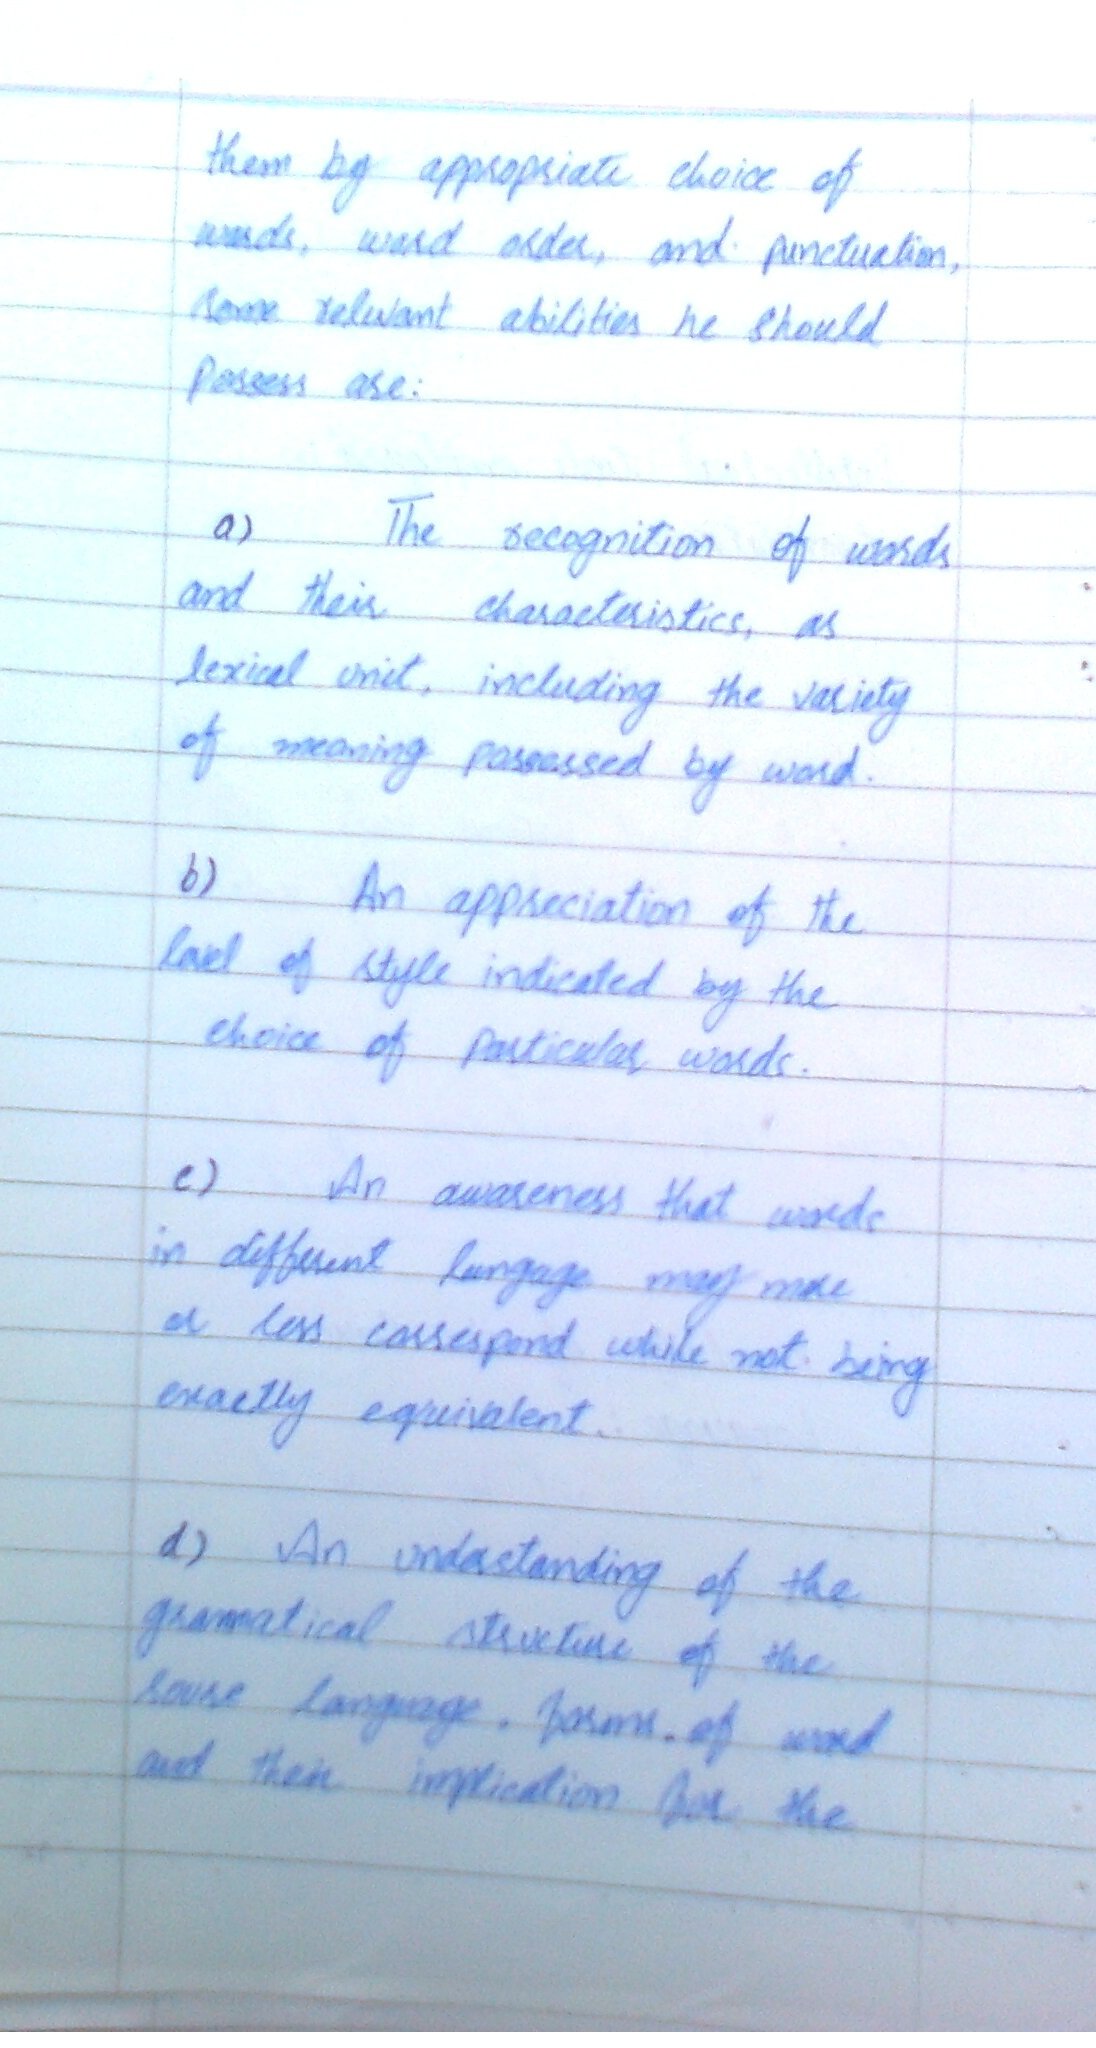 them by appropriate choice of
words, word order, and punctuation,
some relevant abilities he should
Possess are:
a) The recognition of words
and their characteristics, as
lexical unit, including the variety
of meaning possessed by word.
b) An appreciation of the
level of style indicated by the
choice of particular words.
c) An awareness that words
in different langage may more
or less correspond while not being
exactly equivalent.
d) An understanding of the
grammatical structure of the
sourse language, forms of word
and their implication for the